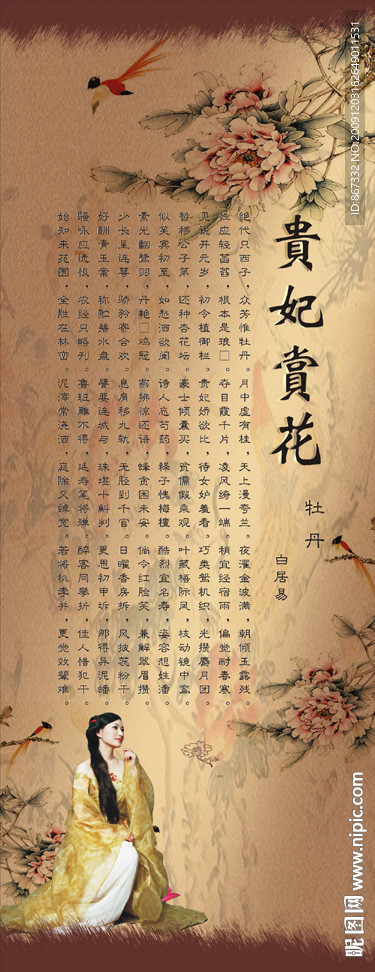 貴妃賞花
牡丹
白居易
绝代只西子，众芳惟牡丹。月中虚有桂，天上漫夸兰。夜濯金波满，朝倾玉露残。
性应轻菡萏，根本是琅□。夺目霞千片，凌风绮一端。稍宜经宿雨，偏觉耐春寒。
见说开元岁，初令植御栏。贵妃娇欲比，侍女妒羞看。巧类鸳机织，光攒麝月团。
暂移公子第，还种杏花坛。豪士倾囊买，贫儒假乘观。叶藏梧际凤，枝动镜中鸾。
似笑宾初至，如愁酒欲阑。诗人忘芍药，释子愧栴檀。酷烈宜名寿，姿容想姓潘。
素光翻鹭羽，丹艳□鸡冠。燕拂惊还语，蜂贪困未安。倘令红脸笑，兼解翠眉攒。
少长呈连萼，骄矜寄合欢。息肩移九轨，无胫到千官。日曜香房拆，风披蕊粉干。
好酬青玉案，称贮碧冰盘。璧要连城与，珠堪十斛判。更思初甲坼，那得异泥蟠。
骚咏应遗恨，农经只略刊。鲁班雕不得，延寿笔将殚。醉客同攀折，佳人惜犯干。
始知来苑囿，全胜在林峦。泥滓常浇洒，庭除又绰宽。若将桃李并，更觉效颦难。
ID:867332 NO:20091203162649011531
昵图网 www.nipic.com